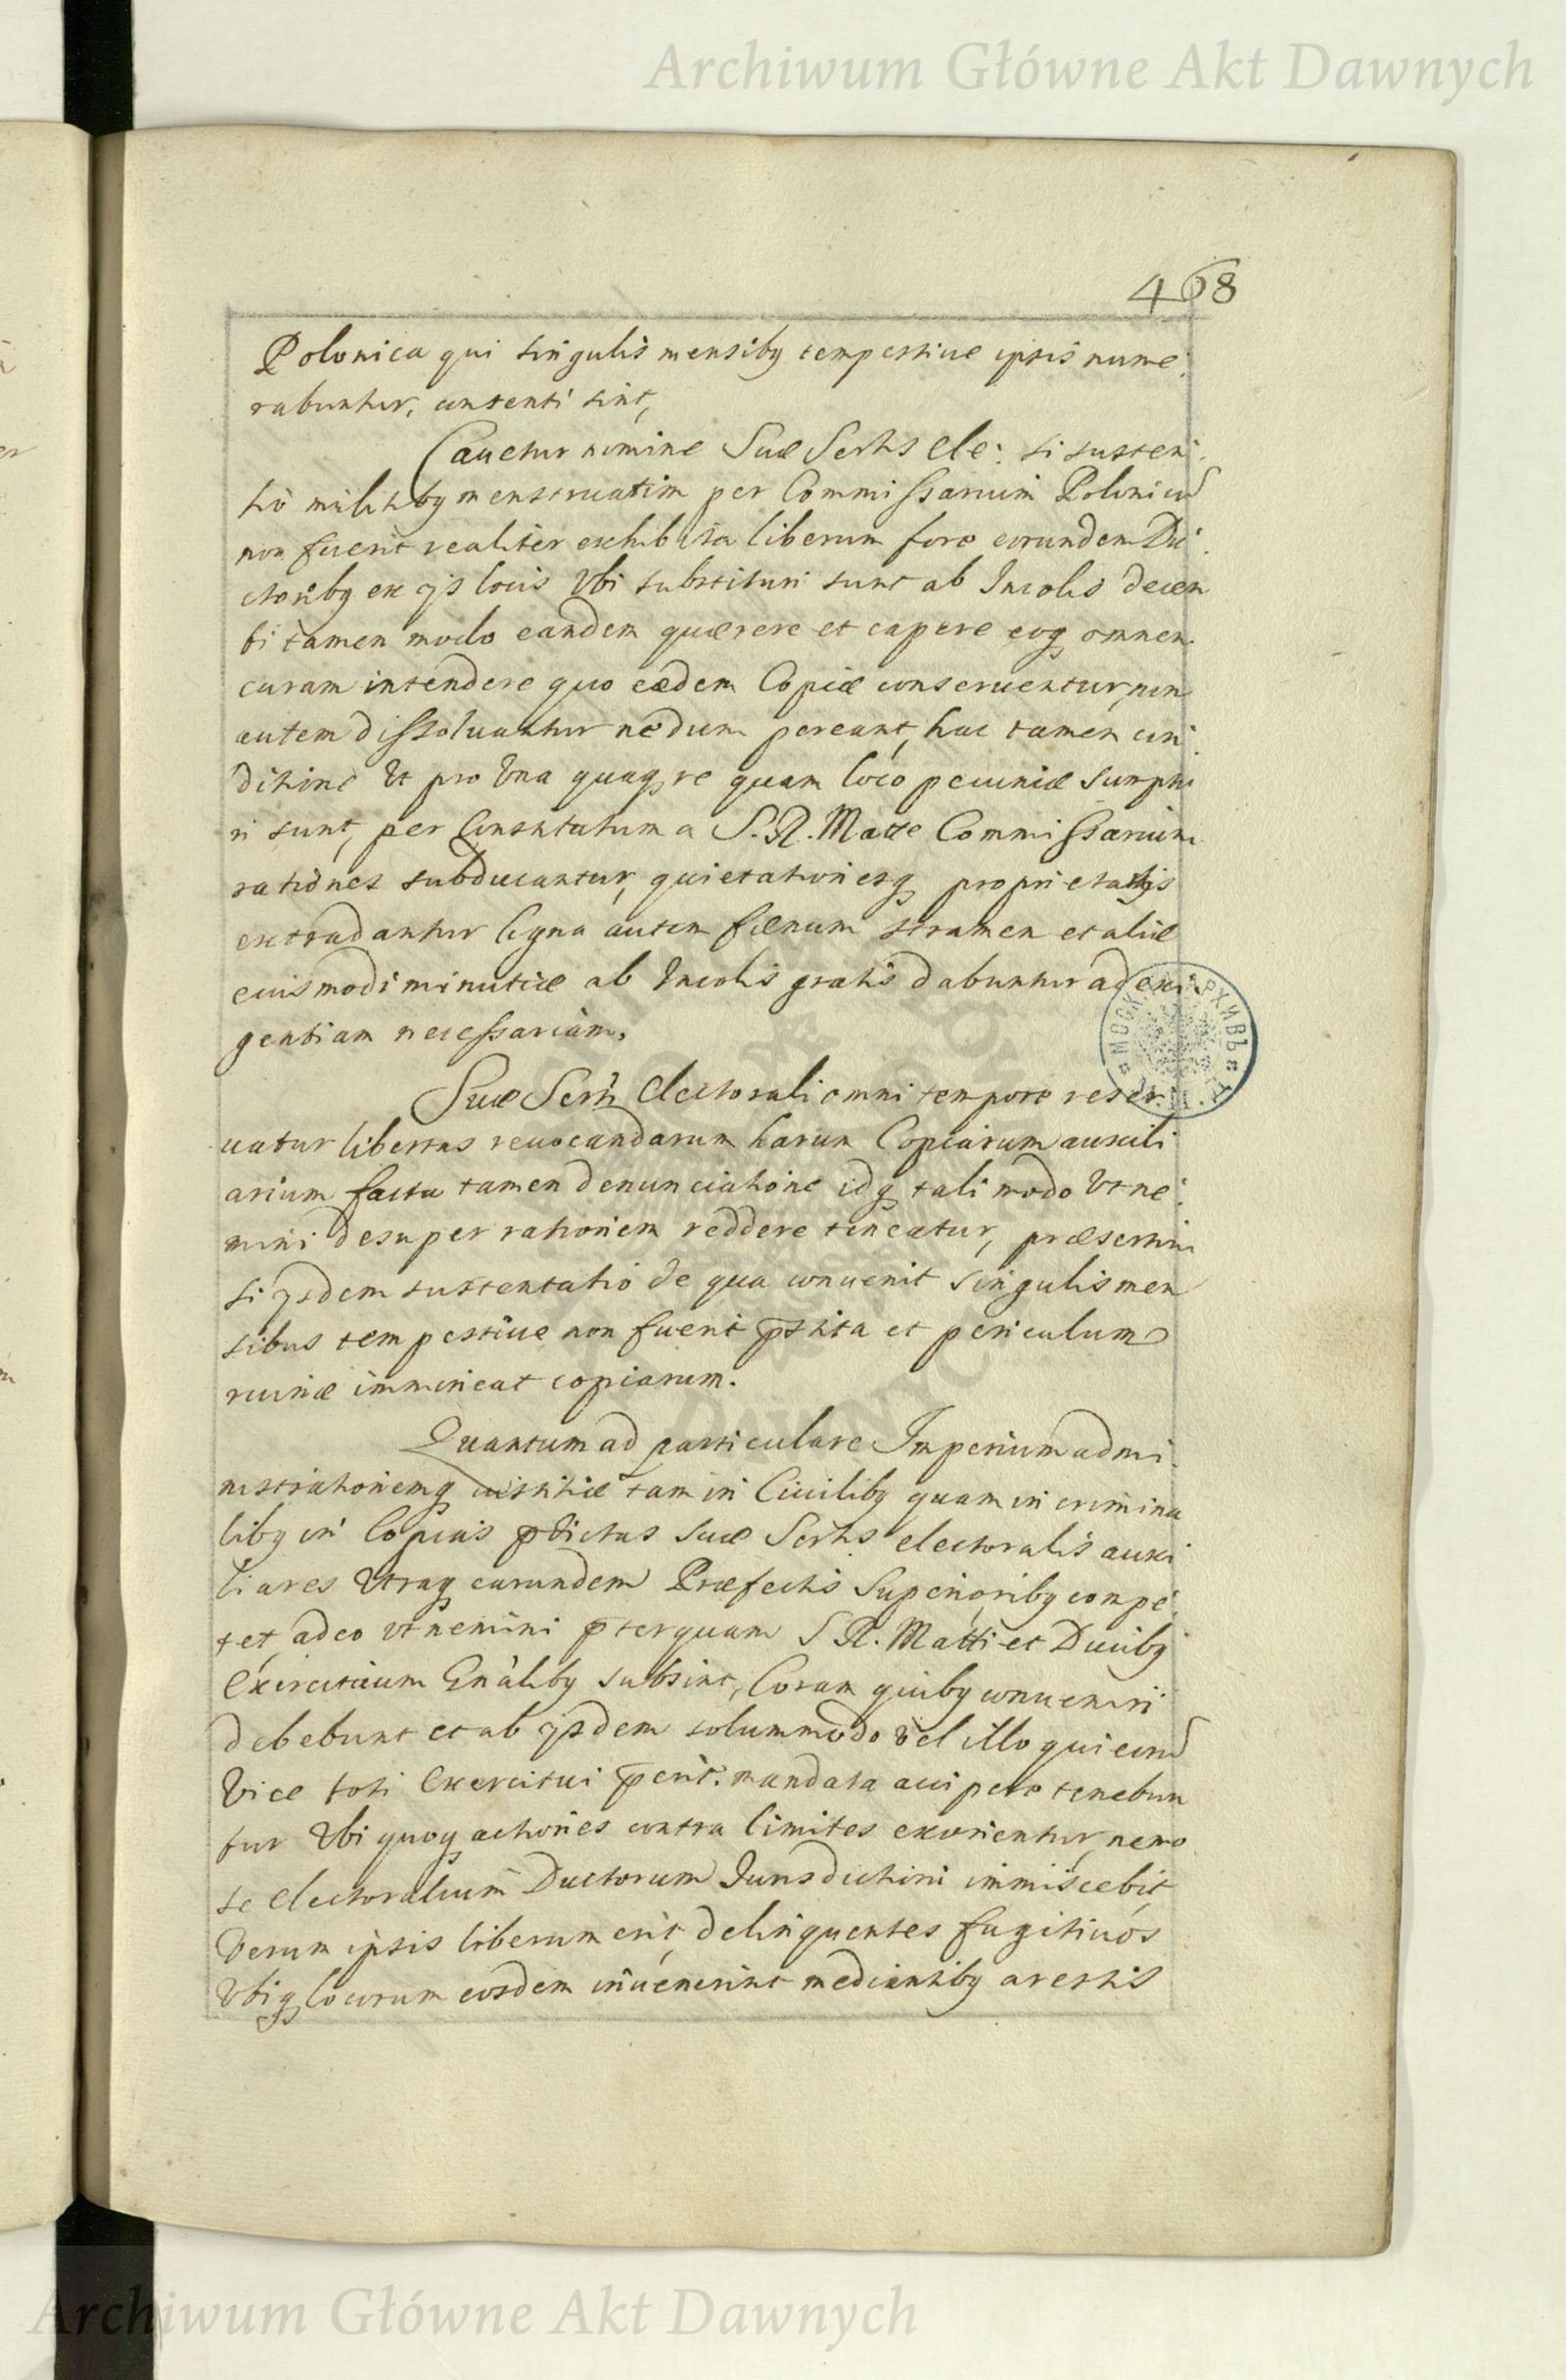 Archiwum Główne Akt Dawnych
468
Polonica qui singulis mensibq tempestiue ipsis nume:
rabuntur, contenti sint,
Cauetur nomine Suæ Sertis ele: si susten:
tio militibq menstruatim per Commissarium Polonicu
non fuerit realiter exhibita liberum fore eorundem Du:
ctoribq ex ijs locis Vbi substituti sunt ab Incolis decen
ti tamen modo eandem quærere et capere eoq omnem
curam intendere quo eædem Copiæ conseruentur, non
autem dissoluantur nedum pereant, hac tamen con:
ditione Vt pro Vna quaq re quam loco pecuniæ sumptu
ri sunt, per Constitutum a S. R. Matte Commissarium
rationes subducantur, quietationesq proprietarijs
extradantur ligna autem fænum stramen et aliæ
eiusmodi minutiæ ab Incolis gratis dabuntur ad exi
gentiam necessariam.
Suæ Serti Electorali omni tempore reser
uatur libertas reuocandarum harum Copiarum auxili
arium facta tamen denunciatione idq tali modo Vt ne:
mini desuper rationem reddere teneatur, præsertim
si ijsdem sustentatio de qua conuenit singulis men
sibus tempestiue non fuerit pstita et periculum
ruinæ immineat copiarum.
Quantum ad particulare Imperium admi
nistrationemq iustitiæ tam in Ciuilibq quam in crimina
libq in Copias pdictas Suæ Sertis electoralis auxi
liares Vtraq earundem Præfectis Superioribq compe:
tet, adeo vt nemini pterquam S R. Matti et Ducibq
Exercituum Gnalibq subsint, Coram quibq conueniri
debebunt et ab ijsdem solummodo vel illo qui eoru
Vice toti Exercitui perit. mandata accipere tenebun
tur Vbi quoq actiones contra limites exorientur, nemo
se electoralium Ductorum Jurisdictioni immiscebit
Verum ipsis liberum erit, delinquentes fugitiuos
Vbiq locorum eosdem inuenerint mediantibq arestis
МОСК. АРХИВЪ
Archiwum Główne Akt Dawnych